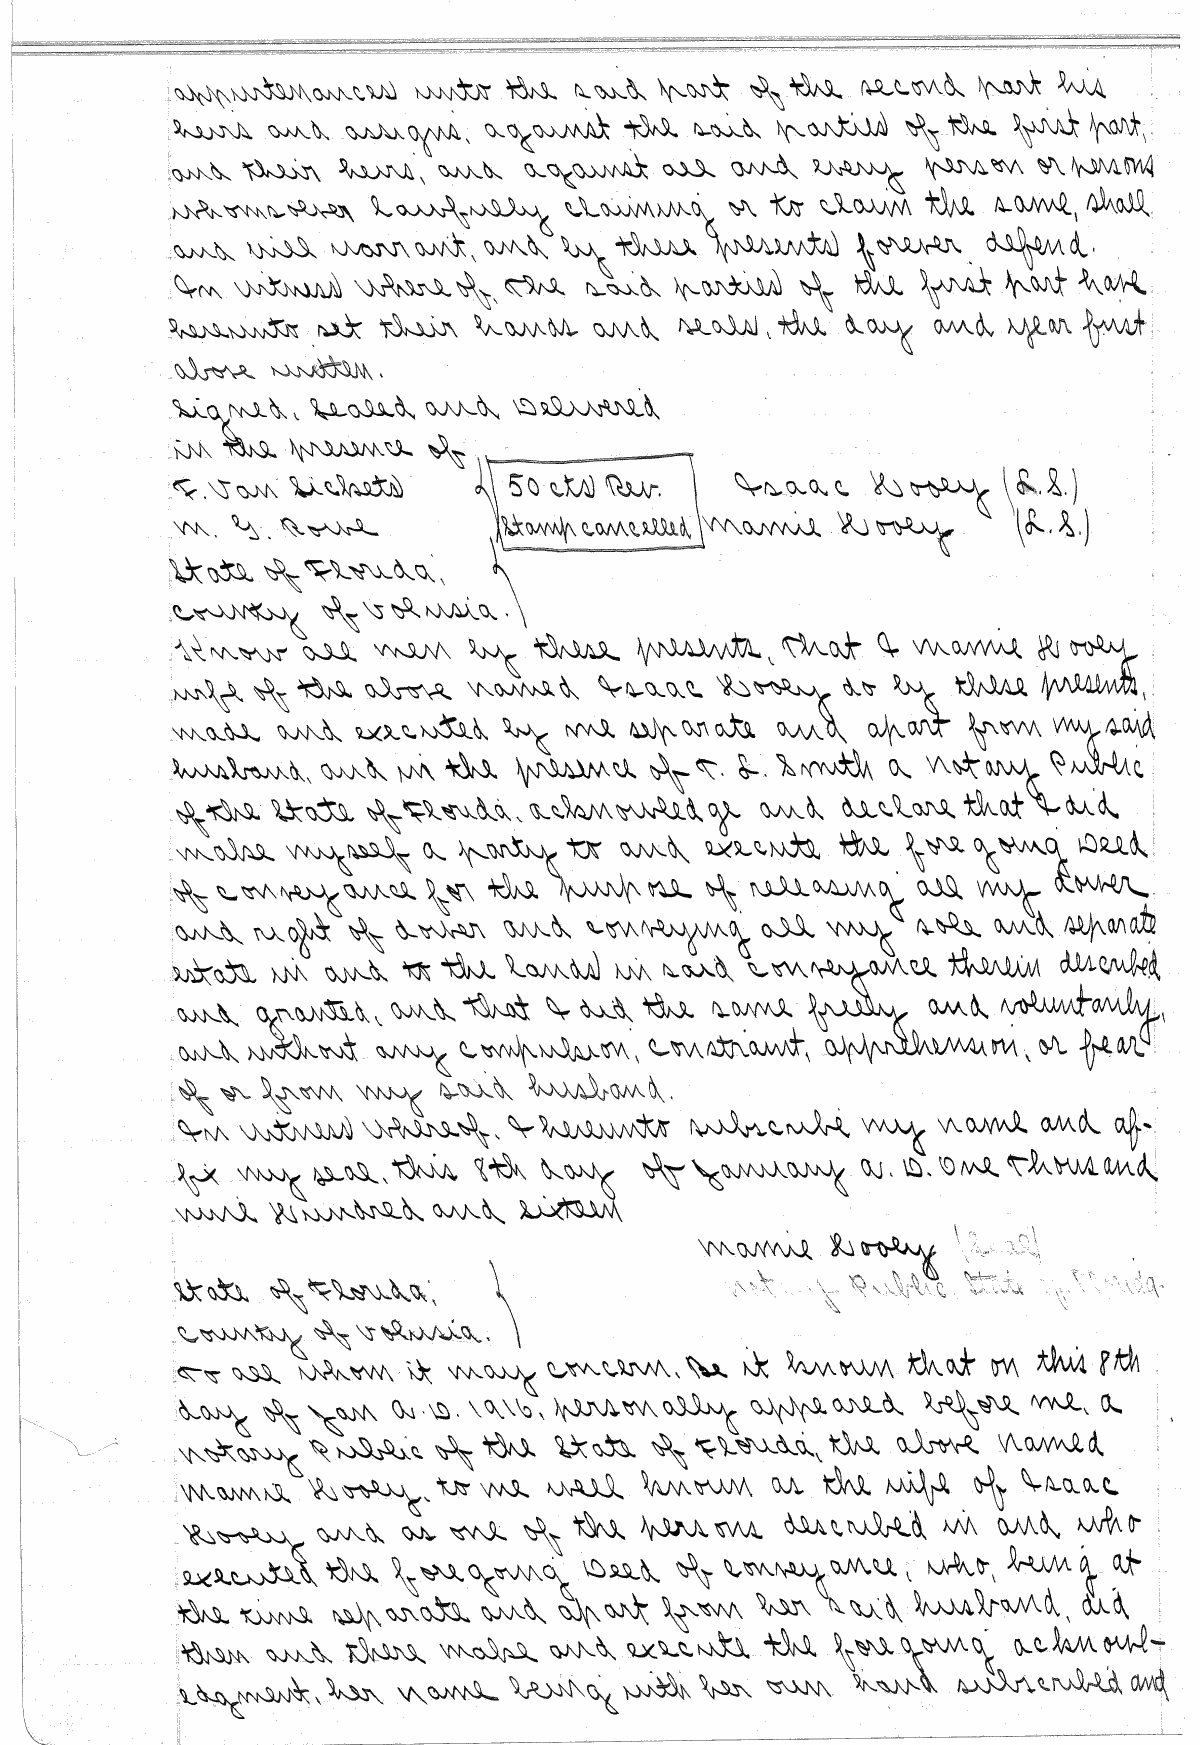 appurtenances unto the said part of the second part his
heirs and assigns, against the said parties of the first part,
and their heirs, and against all and every person or persons
whomsoever lawfully claiming or to claim the same, shall
and will warrant, and by these presents forever defend.
In witness whereof, The said parties of the first part have
hereunto set their hands and seals, the day and year first
above written.
Signed, Sealed and Delivered
in the presence of
F. Van Sickets 50 cts Rev. Isaac Hooey (L.S.)
M. G. Rowe Stamp cancelled Mamie Hooey (L.S.)
State of Florida,
County of Volusia.
Know all men by these presents, That I Mamie Hooey
wife of the above named Isaac Hooey do by these presents,
made and executed by me separate and apart from my said
husband, and in the presence of T. L. Smith a Notary Public
of the State of Florida, acknowledge and declare that I did
make myself a party to and execute the foregoing Deed
of conveyance for the purpose of releasing all my dower
and right of dower and conveying all my sole and separate
estate in and to the lands in said conveyance therein described
and granted, and that I did the same freely and voluntarily,
and without any compulsion, constraint, apprehension, or fear
of or from my said husband.
In witness whereof, I hereunto subscribe my name and af-
fix my seal, this 8th day of January A. D. One Thousand
nine Hundred and Sixteen
Mamie Hooey (Seal)
Notary Public State of Florida.
State of Florida,
County of Volusia.
To all whom it may concern, Be it known that on this 8th
day of Jan A. D. 1916, personally appeared before me, a
Notary Public of the State of Florida, the above named
Mamie Hooey, to me well known as the wife of Isaac
Hooey and as one of the persons described in and who
executed the foregoing Deed of conveyance, who, being at
the time separate and apart from her said husband, did
then and there make and execute the foregoing acknowl-
edgment, her name being with her own hand subscribed and